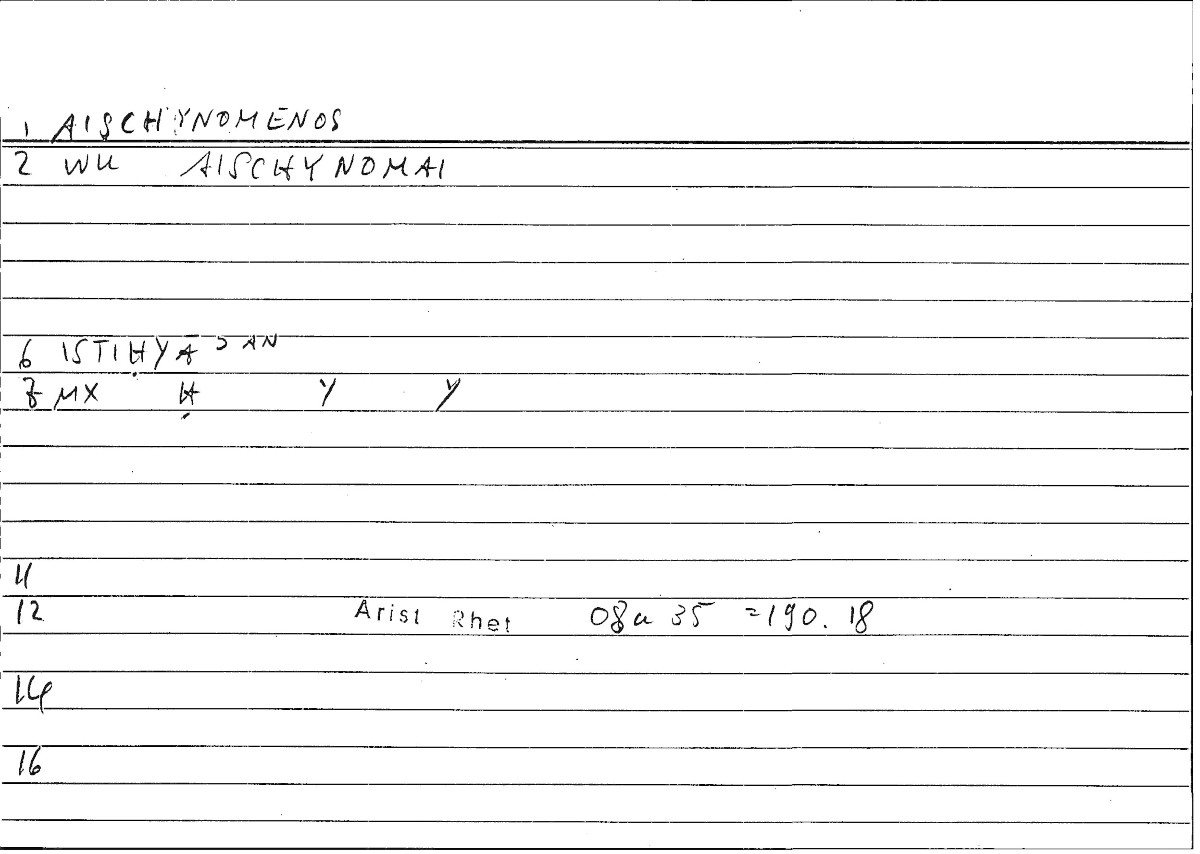 1 AISCHYNOMENOS
2 WU AISCHYNOMAI
6 ISTIḤYAʾAN
7 MX Ḥ Y Y
11
12 Arist Rhet 08a 35 =190.18
14
16